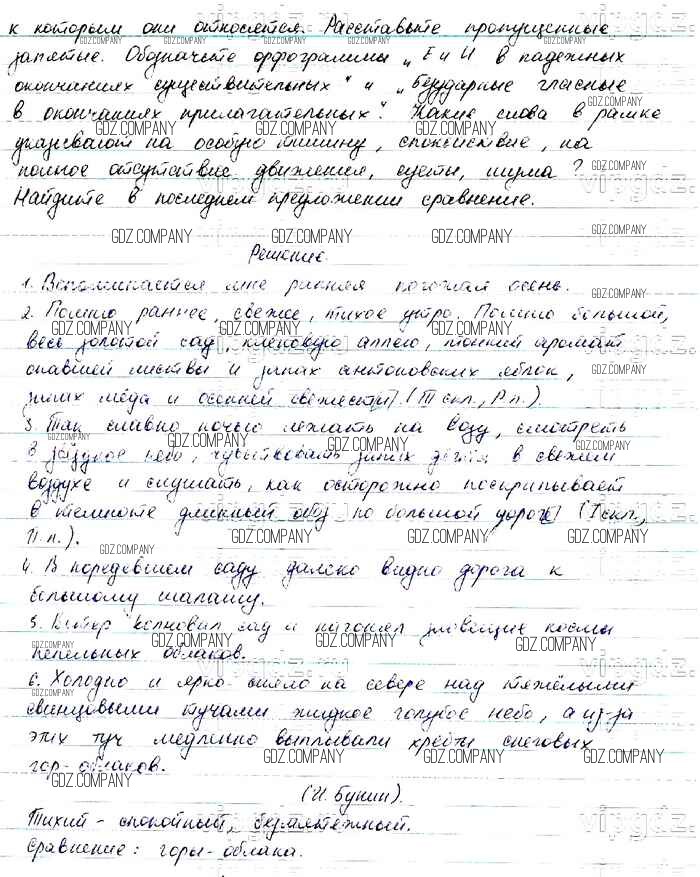 к которым они относятся. Расставьте пропущенные
запятые. Обозначьте орфограммы „Е и И в падежных
окончаниях существительных" и „Безударные гласные
в окончаниях прилагательных". Какие слова в рамке
указывают на особую тишину, спокойствие, на
полное отсутствие движения, суеты, шума?
Найдите в последнем предложении сравнение.
Решение
1. Вспоминается мне ранняя погожая осень.
2. Помню раннее, свежее, тихое утро. Помню большой,
весь золотой сад, кленовую аллею, тонкий аромат
опавшей листвы и запах антоновских яблок,
запах мёда и осенней свежести. (III скл., Р.п.).
3. Так славно ночью лежать на возу, смотреть
в звёздное небо, чувствовать запах дёгтя в свежем
воздухе и слушать, как осторожно поскрипывает
в темноте длинный обоз по большой дороге (I скл.,
П.п.).
4. В поредевшем саду далеко видна дорога к
большому шалашу.
5. Ветер волновал сад и нагонял зловещие космы
пепельных облаков.
6. Холодно и ярко сияло на севере над тяжёлыми
свинцовыми тучами жидкое голубое небо, а из-за
этих туч медленно выплывали хребты снеговых
гор-облаков.
(И. Бунин).
Тихий - спокойный, безмятежный.
Сравнение: горы-облака.